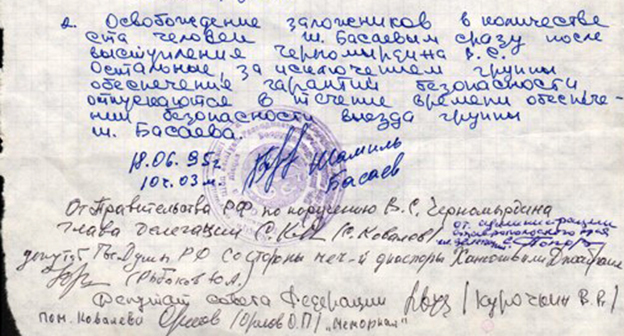 2. Освобождение заложников в количестве
ста человек Ш. Басаевым сразу после
выступления Черномырдина В.С.
Остальные, за исключением группы
обеспечения гарантий безопасности
отпускаются в течение времени обеспече-
нии безопасности выезда группы
Ш. Басаева.
18.06.95г. Шамиль
10ч.03м Басаев
От Правительства РФ по поручению В.С. Черномырдина
глава делегации (С. Ковалев) от администрации
Ставропольского края
депутат Гос. Думы РФ Со стороны чеч-й диаспоры
(Рыбаков Ю.А.)
Депутат совета Федерации /Курочкин В.В./
пом. Ковалева Орлов /Орлов О.П./ "Мемориал"